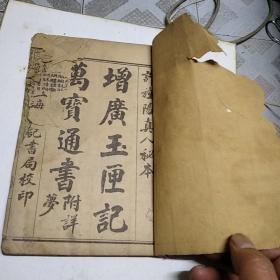 許真人秘本
增廣玉匣記
萬寶通書附詳夢
上海
記書局校印